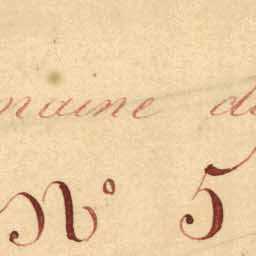 maine d
N° 5